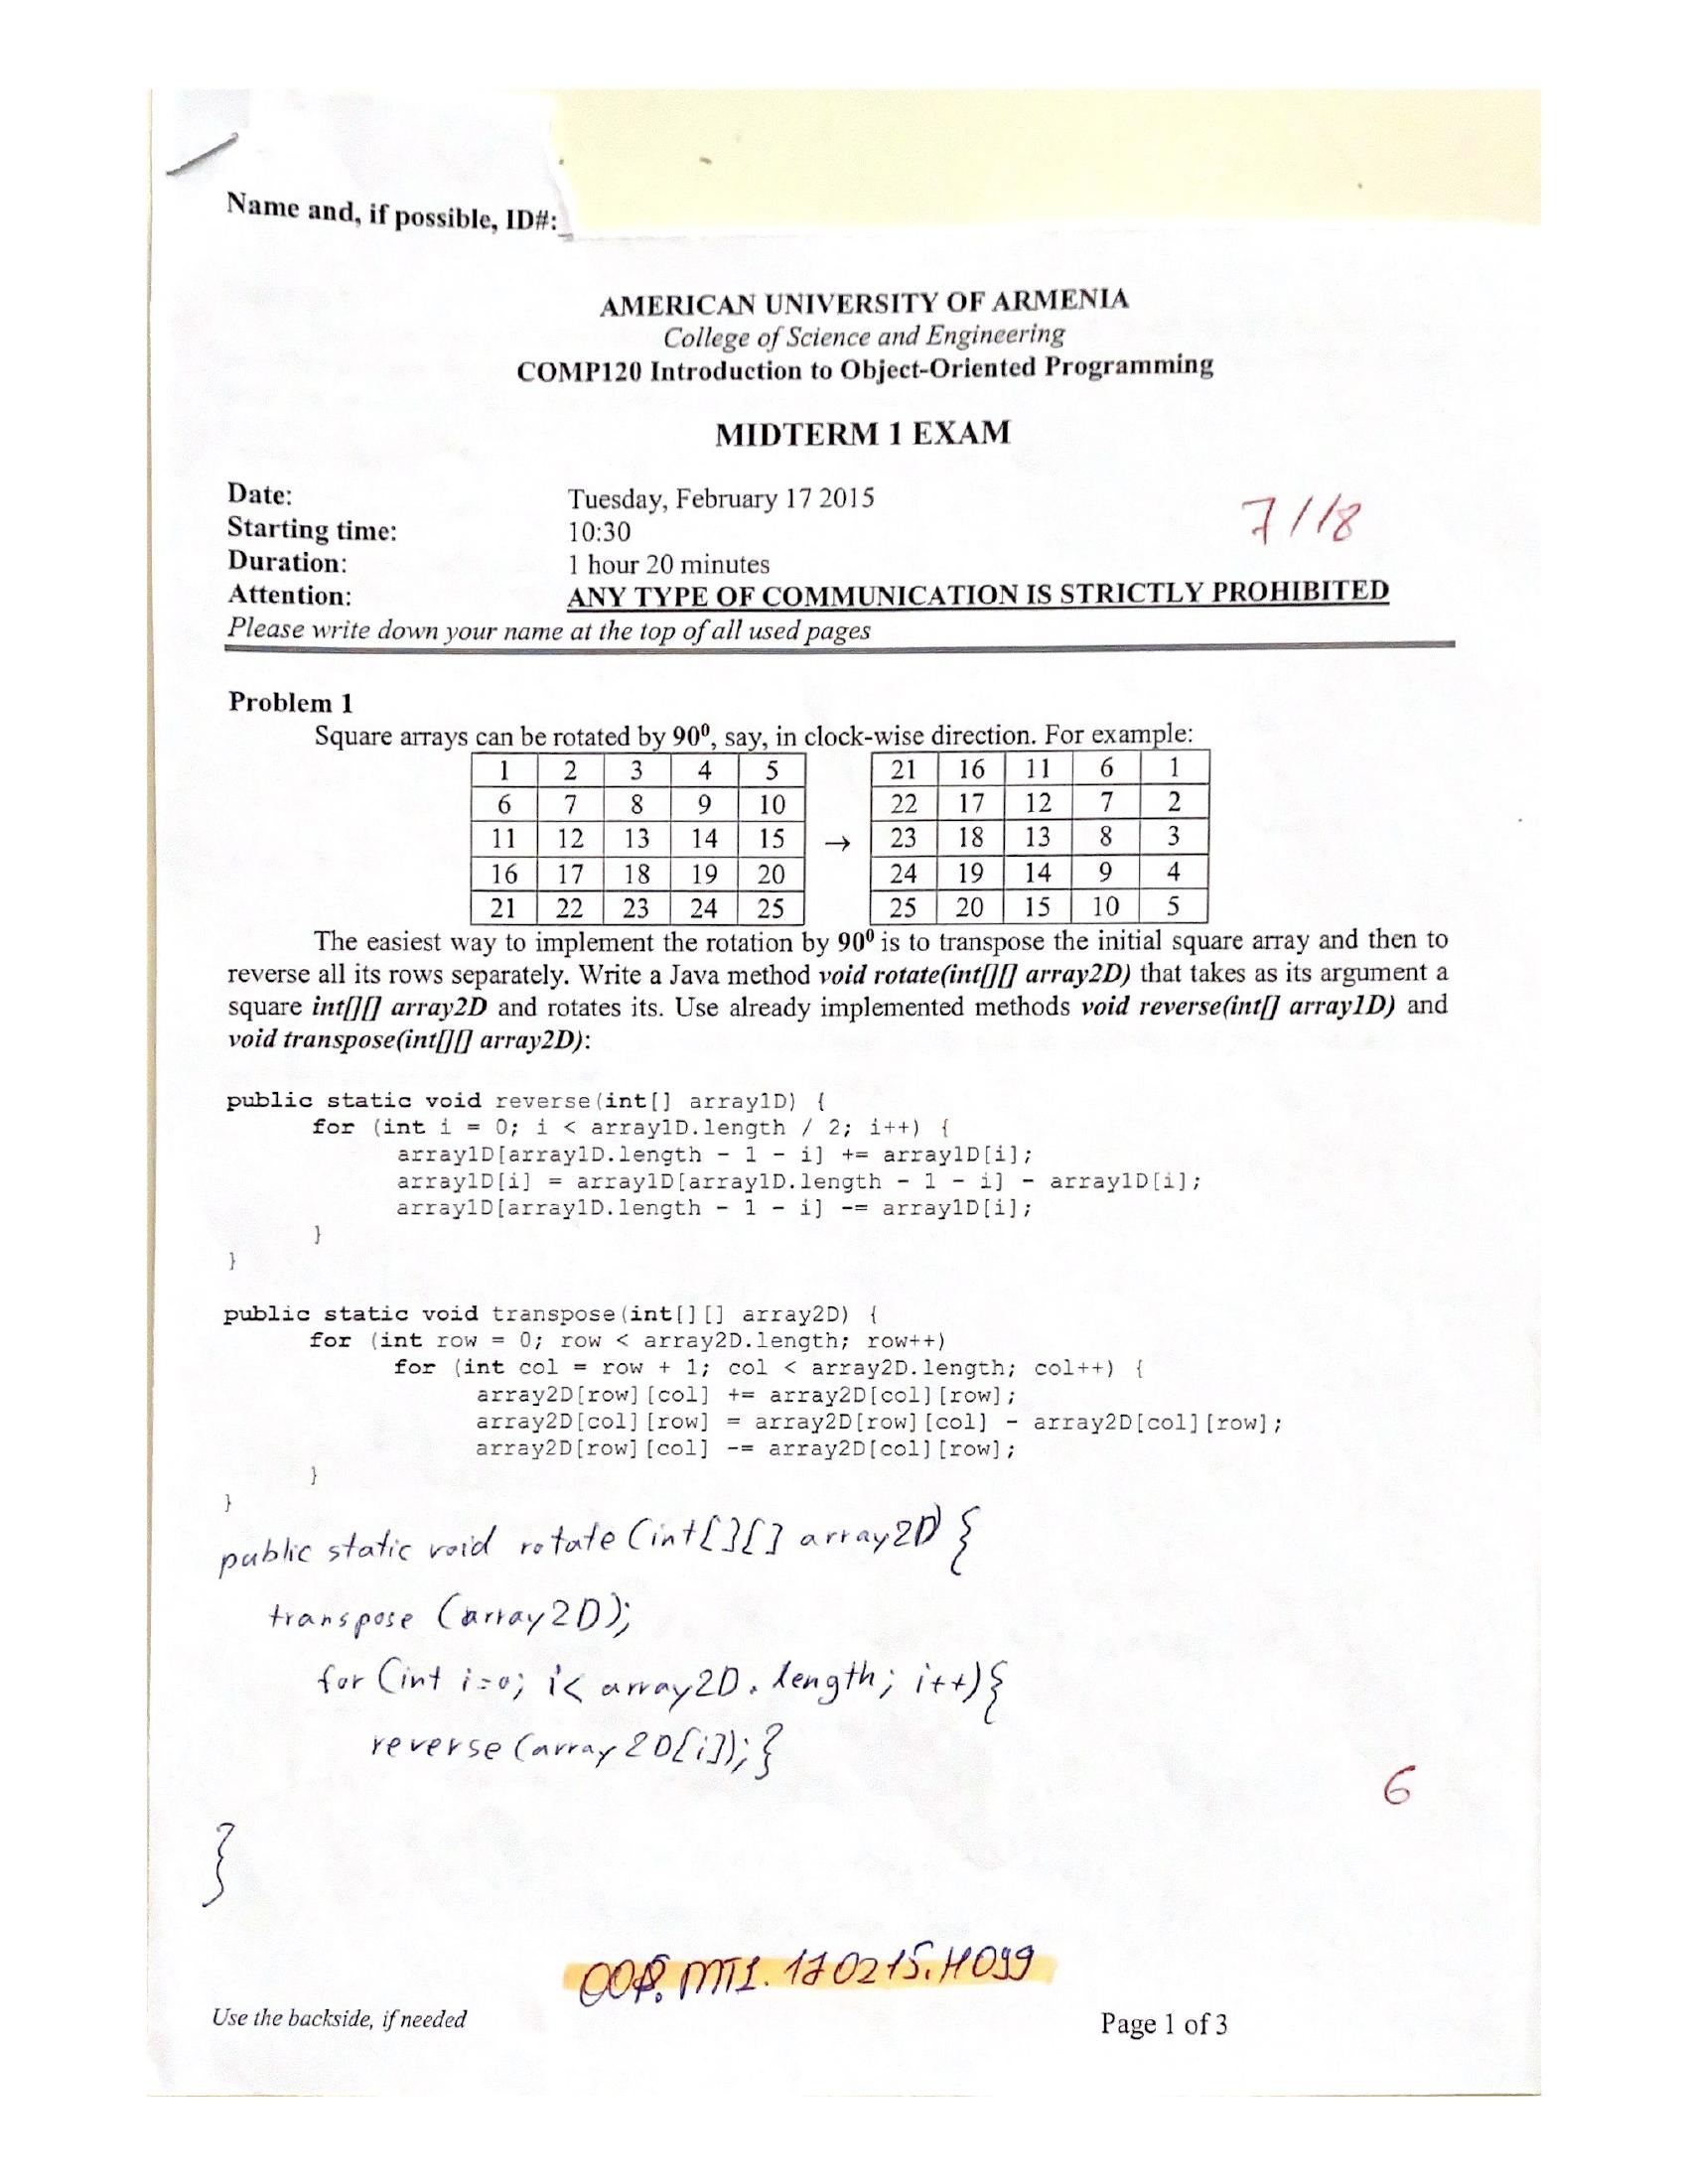 Name and, if possible, ID#:
AMERICAN UNIVERSITY OF ARMENIA
College of Science and Engineering
COMP120 Introduction to Object-Oriented Programming
MIDTERM 1 EXAM
Date: Tuesday, February 17 2015
7/18
Starting time: 10:30
Duration: 1 hour 20 minutes
Attention: ANY TYPE OF COMMUNICATION IS STRICTLY PROHIBITED
Please write down your name at the top of all used pages
Problem 1
Square arrays can be rotated by 90⁰, say, in clock-wise direction. For example:
1 2 3 4 5 21 16 11 6 1
6 7 8 9 10 22 17 12 7 2
11 12 13 14 15 → 23 18 13 8 3
16 17 18 19 20 24 19 14 9 4
21 22 23 24 25 25 20 15 10 5
The easiest way to implement the rotation by 90⁰ is to transpose the initial square array and then to
reverse all its rows separately. Write a Java method void rotate(int[][] array2D) that takes as its argument a
square int[][] array2D and rotates its. Use already implemented methods void reverse(int[] array1D) and
void transpose(int[][] array2D):
public static void reverse(int[] array1D) {
for (int i = 0; i < array1D.length / 2; i++) {
array1D[array1D.length - 1 - i] += array1D[i];
array1D[i] = array1D[array1D.length - 1 - i] - array1D[i];
array1D[array1D.length - 1 - i] -= array1D[i];
}
}
public static void transpose(int[][] array2D) {
for (int row = 0; row < array2D.length; row++)
for (int col = row + 1; col < array2D.length; col++) {
array2D[row][col] += array2D[col][row];
array2D[col][row] = array2D[row][col] - array2D[col][row];
array2D[row][col] -= array2D[col][row];
}
}
public static void rotate (int[][] array2D) {
transpose (array2D);
for (int i=0; i< array2D. length; i++){
reverse (array2D[i]);}
6
}
OOP. MT1. 170215. H099
Use the backside, if needed
Page 1 of 3